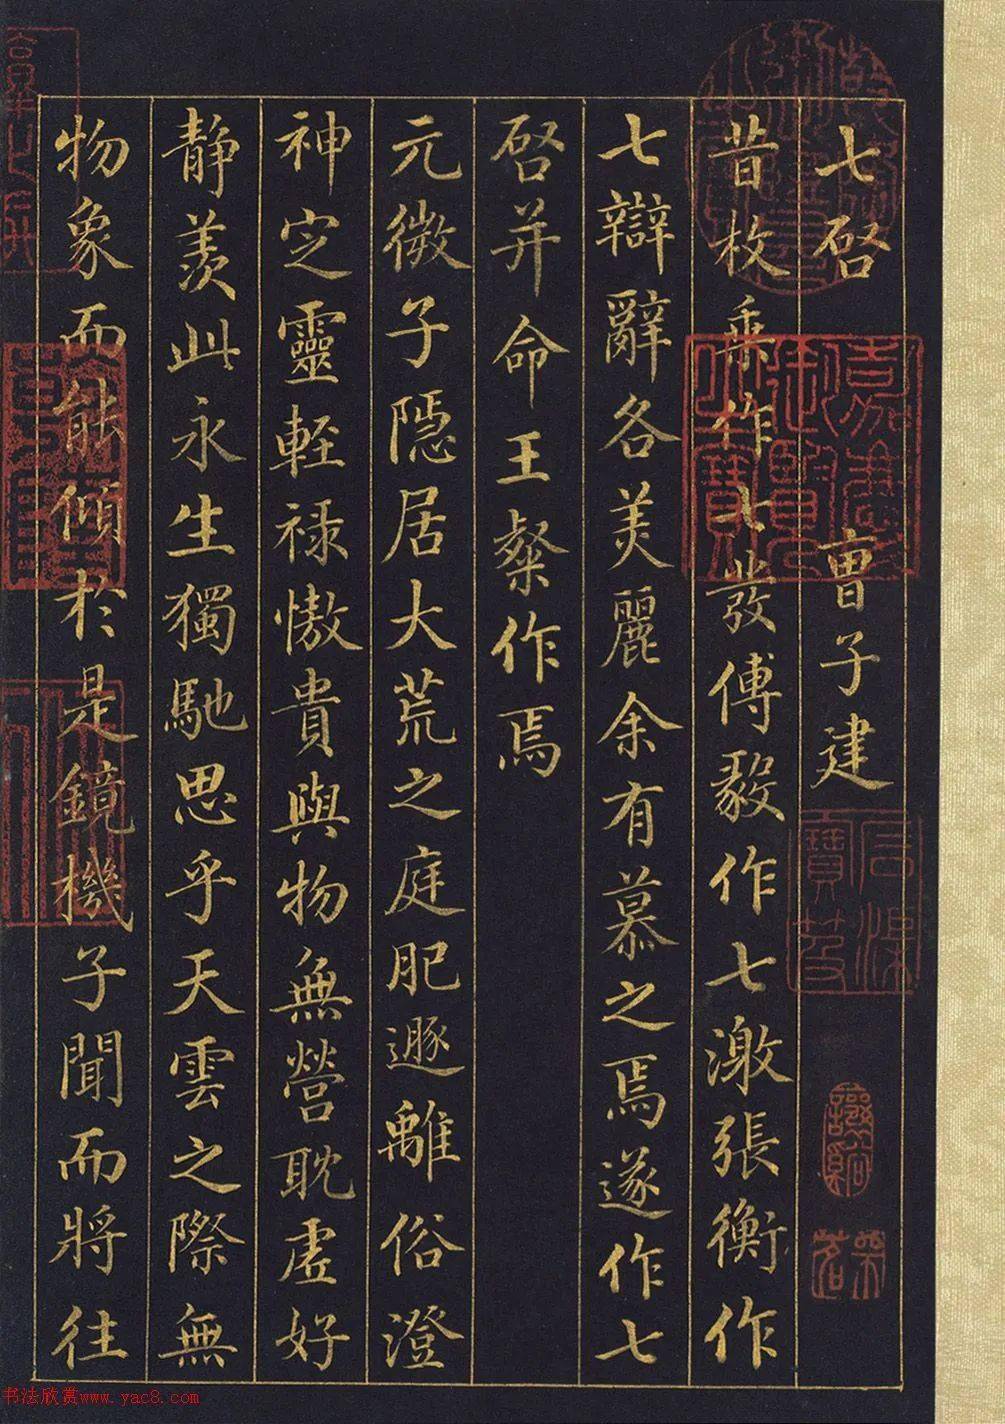 七啓 曹子建
昔枚乗作七發傅毅作七激張衡作
七辯辭各美麗余有慕之焉遂作七
啓并命王粲作焉
元微子隱居大荒之庭肥遯離俗澄
神定靈輕祿慠貴與物無營耽虛好
靜羨此永生獨馳思乎天雲之際無
物象而能傾於是鏡機子聞而將往
嘉慶御覽之寶
書法欣赏www.yac8.com